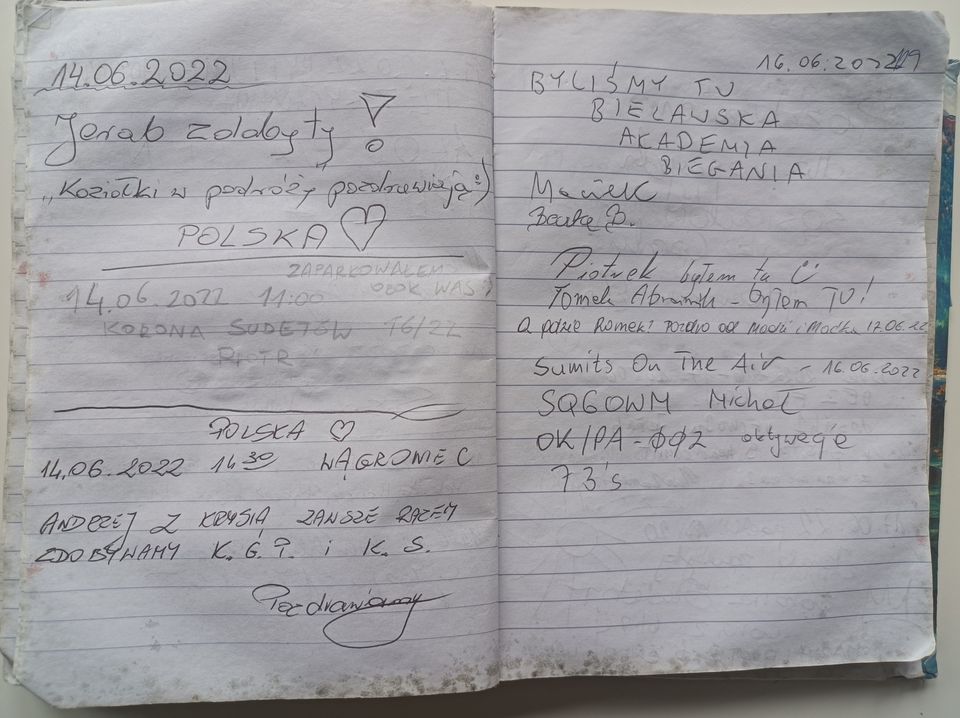 14.06.2022
Jerab zdobyty !
„Koziołki w podróży pozdrawiają :)
POLSKA ♡
ZAPARKOWAŁEM
OBOK WAS :)
14.06.2022 11:00
KORONA SUDETÓW 16/22
PIOTR
POLSKA ♡
14.06.2022 14 30 WĄGROWIEC
ANDRZEJ Z KRYSIĄ ZAWSZE RAZEM
ZDOBYWAMY K.G.P. i K.S.
Pozdrawiamy
16.06.2022
BYLIŚMY TU
BIELAWSKA
AKADEMIA
BIEGANIA
Maciek
Beata B.
Piotrek byłem tu
Tomek - byłem TU!
A gdzie Romek? Pozdro od Madzi i Maćka 17.06.22
Sumits On The Air - 16.06.2022
SQ6OWM Michał
OK/PA-ØØ2 aktywacja
73's